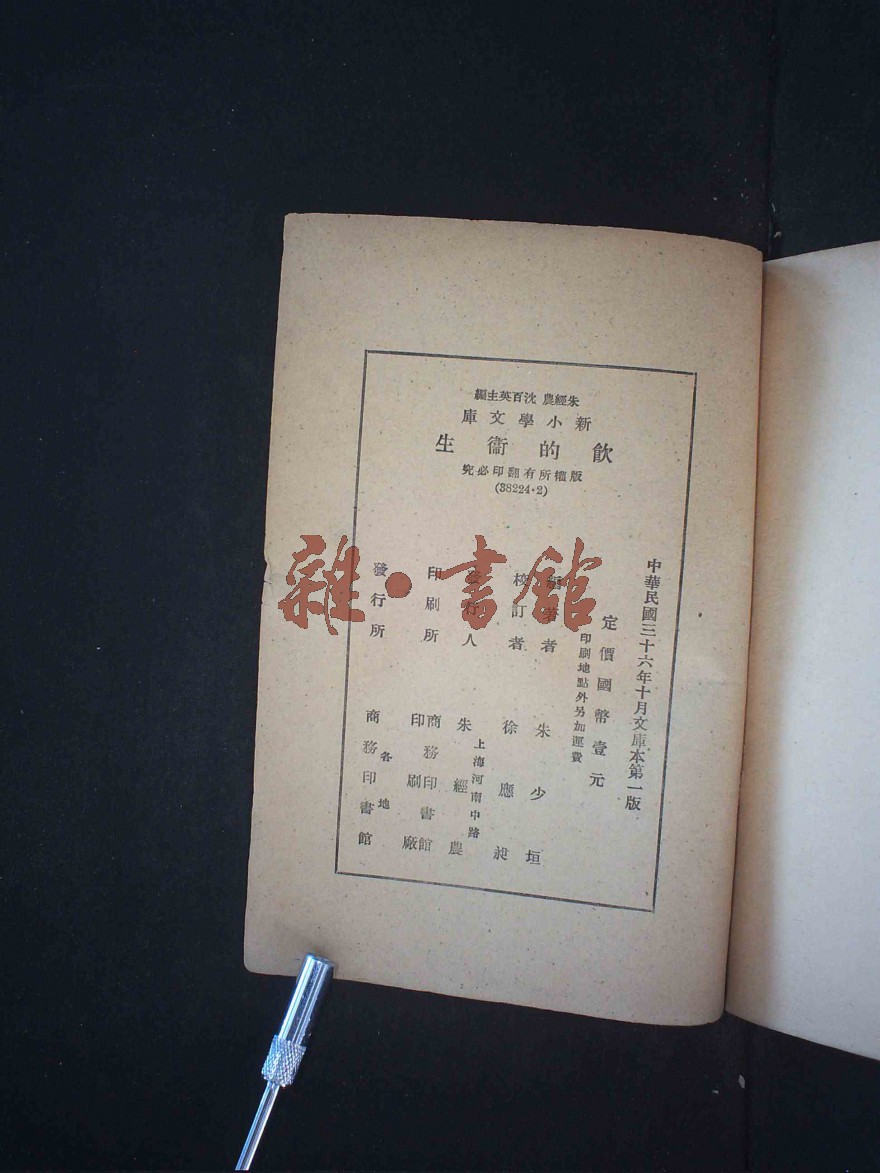 朱經農 沈百英主編
新小學文庫
飲的衞生
版權所有翻印必究
(38224·2)
中華民國三十六年十月文庫本第一版
定價國幣壹元
印刷地點外另加運費
編著者 朱少垣
校訂者 徐應昶
發行人 朱經農
上海河南中路
印刷所 商務印書館
印刷廠
發行所 商務印書館
各地
雜·書館